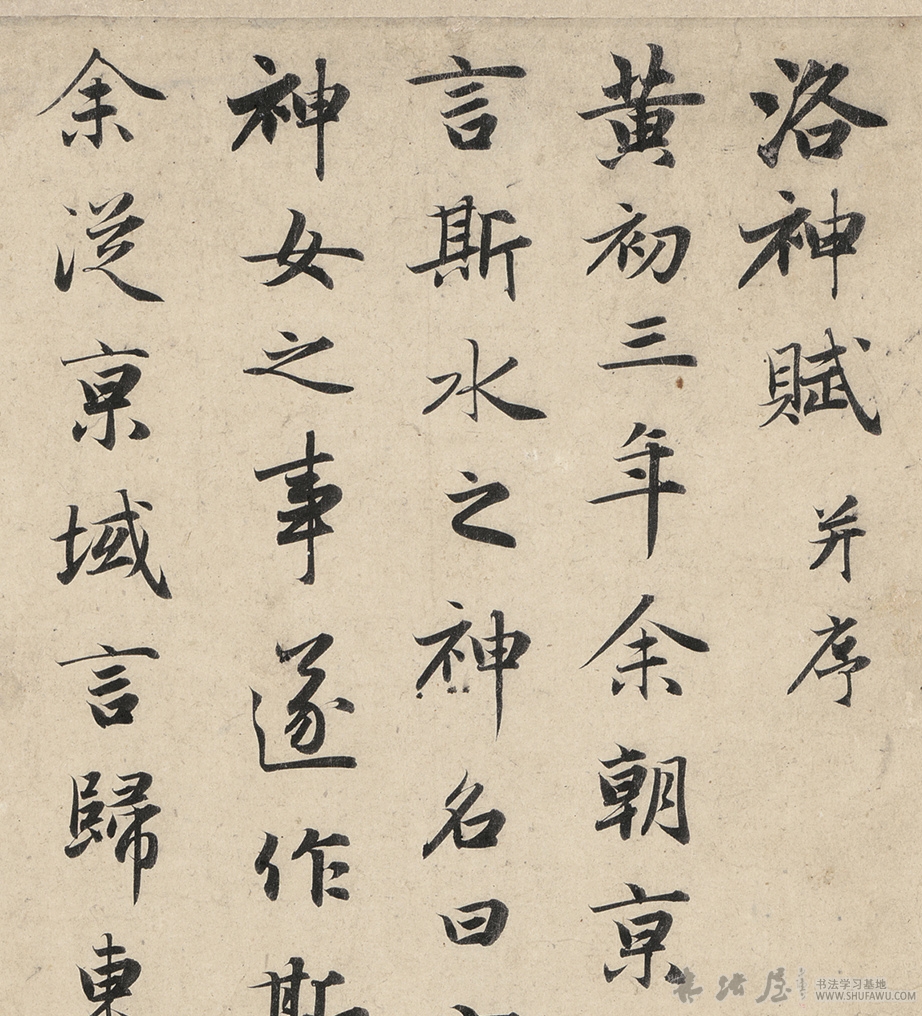 洛神賦并序
黄初三年余朝京
言斯水之神名曰
神女之事遂作斯
余從京域言歸東
书法屋
书法学习基地
WWW.SHUFAWU.COM